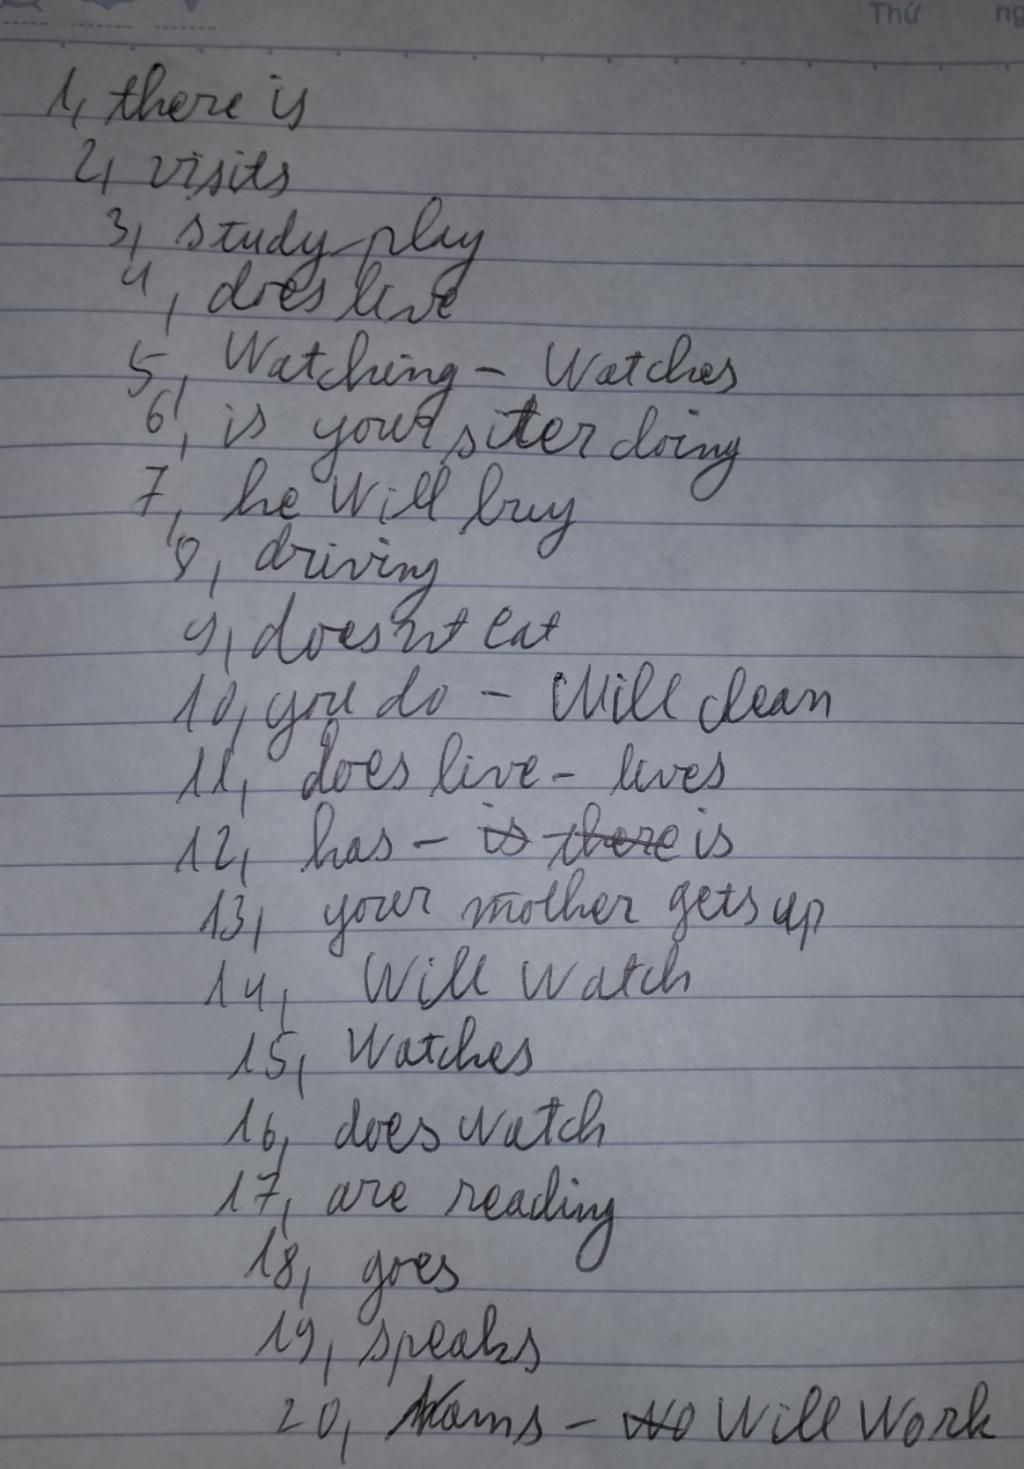 Thứ ng
1, there is
2, visits
3, study play
4, does live
5, Watching - Watches
6, is your siter doing
7, he Will buy
8, driving
9, doesn't eat
10, you do - Will clean
11, does live - lives
12, has - is there is
13, your mother gets up
14, Will Watch
15, Watches
16, does Watch
17, are reading
18, goes
19, speaks
20, - Wo Will Work